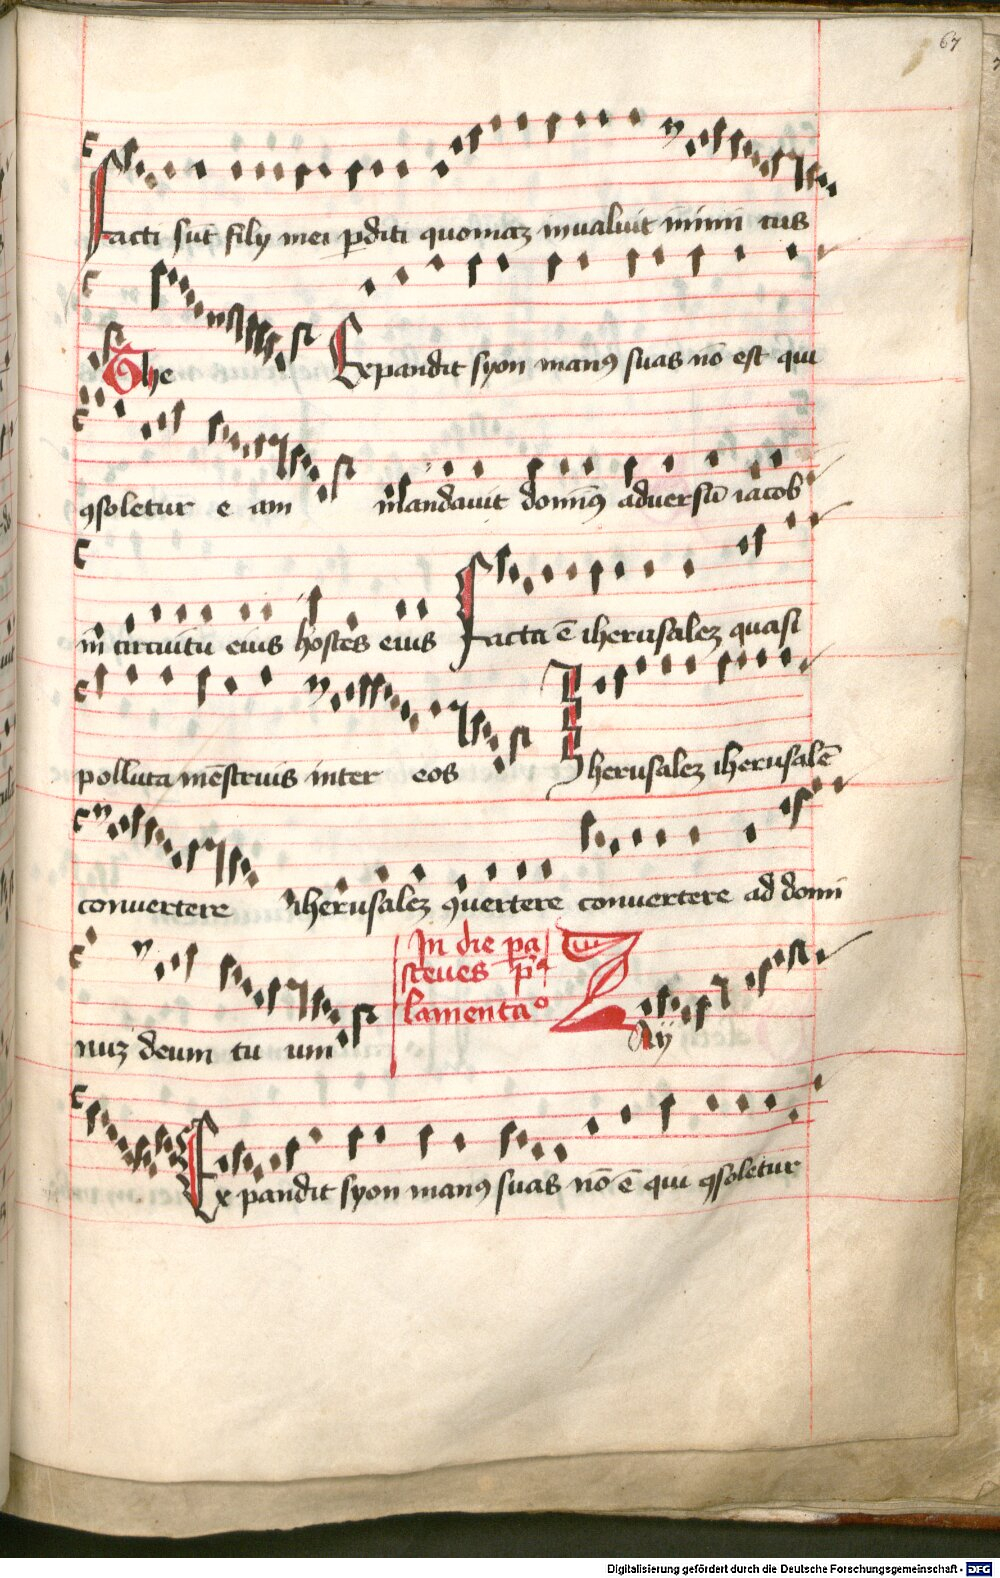 67
Facti sūt filÿ mei ꝑditi quoniaꝫ invaluit inimi cus
Phe Expandit syon manꝰ suas nō est qui
ꝯsoletur e am Mandavit dominꝰ adversū iacob
in circuitu eius hostes eius Facta ē iherusaleꝫ quasi
polluta mēstruis inter eos Iherusaleꝫ iherusalē
convertere Iherusaleꝫ ꝯvertere convertere ad domi
nuꝫ deum tu um
In die pa
sceues pͣ
lamentaº
Zay
Expandit syon manꝰ suas nō ē qui ꝯsoletur
Digitalisierung gefördert durch die Deutsche Forschungsgemeinschaft - DFG